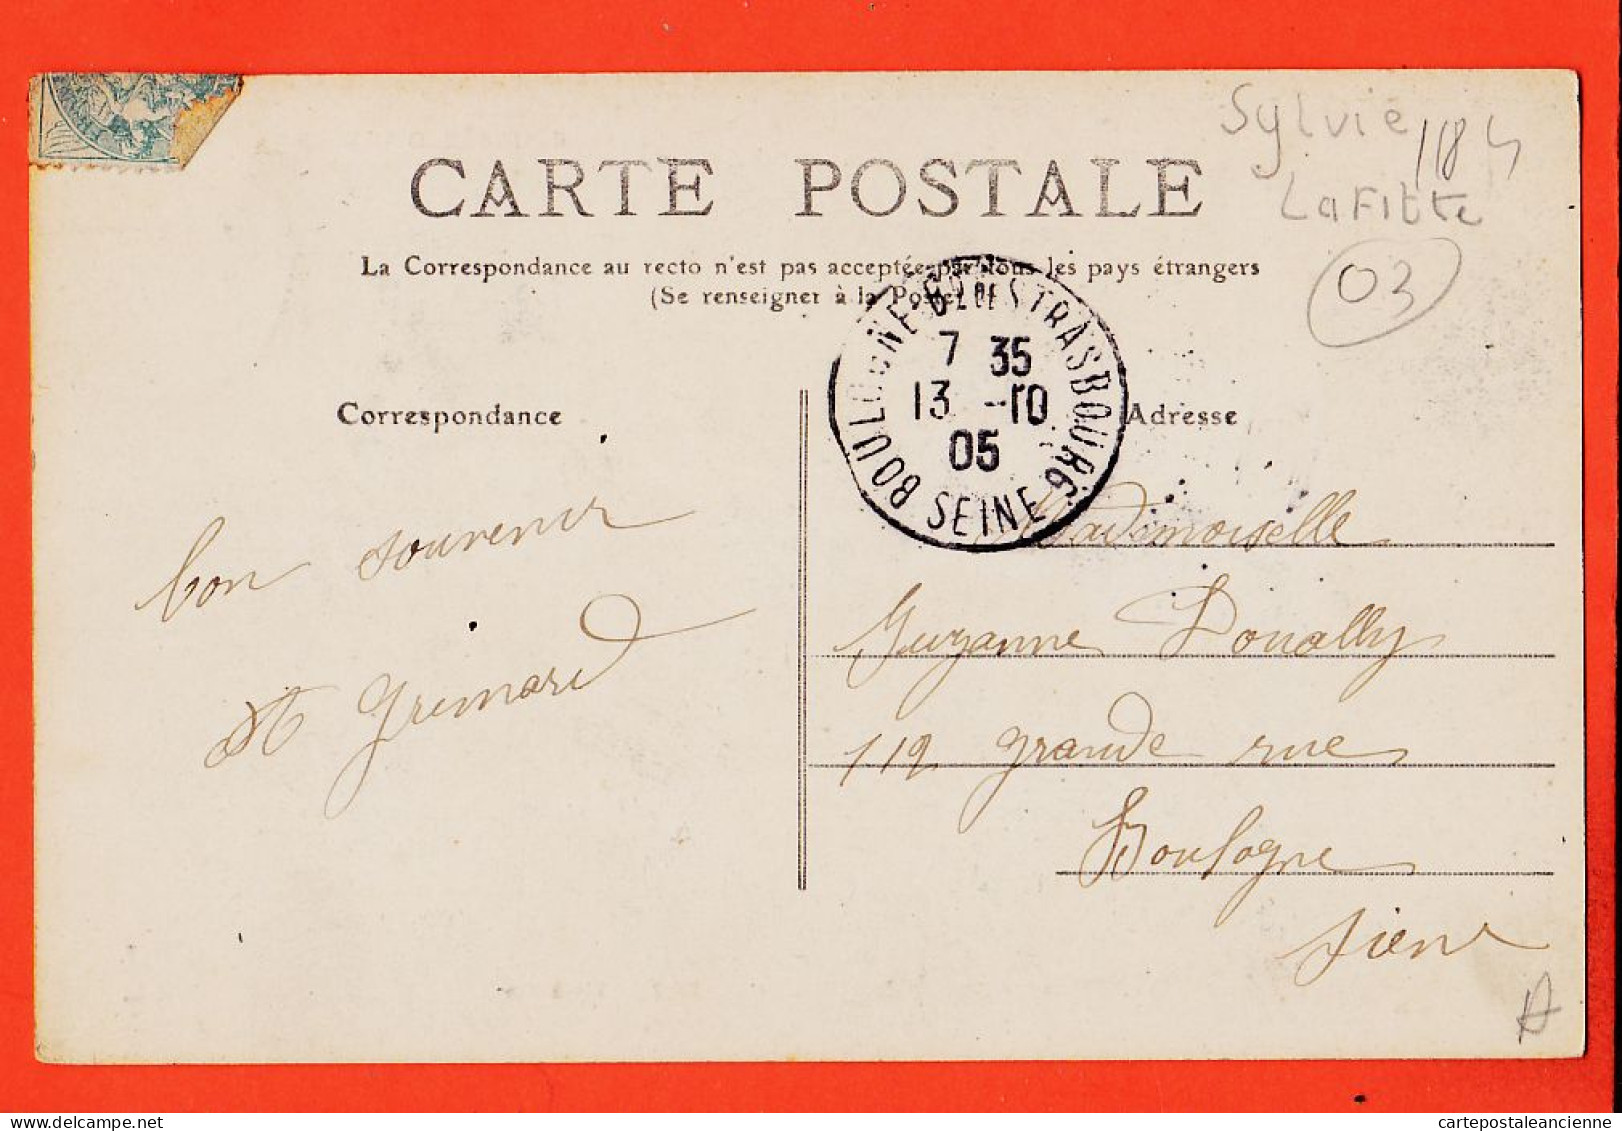 Sylvie 184
CARTE POSTALE
Lafitte
La Correspondance au recto n'est pas acceptée par tous les pays étrangers
(Se renseigner à la Poste)
03
BOULOGNE-BD DE STRASBOURG
7 35
13 -10
05
SEINE
Correspondance
Adresse
bon souvenir
Grimard
Mademoiselle
Suzanne Doually
112 grande rue
Boulogne
Siene
cartepostaleancienne